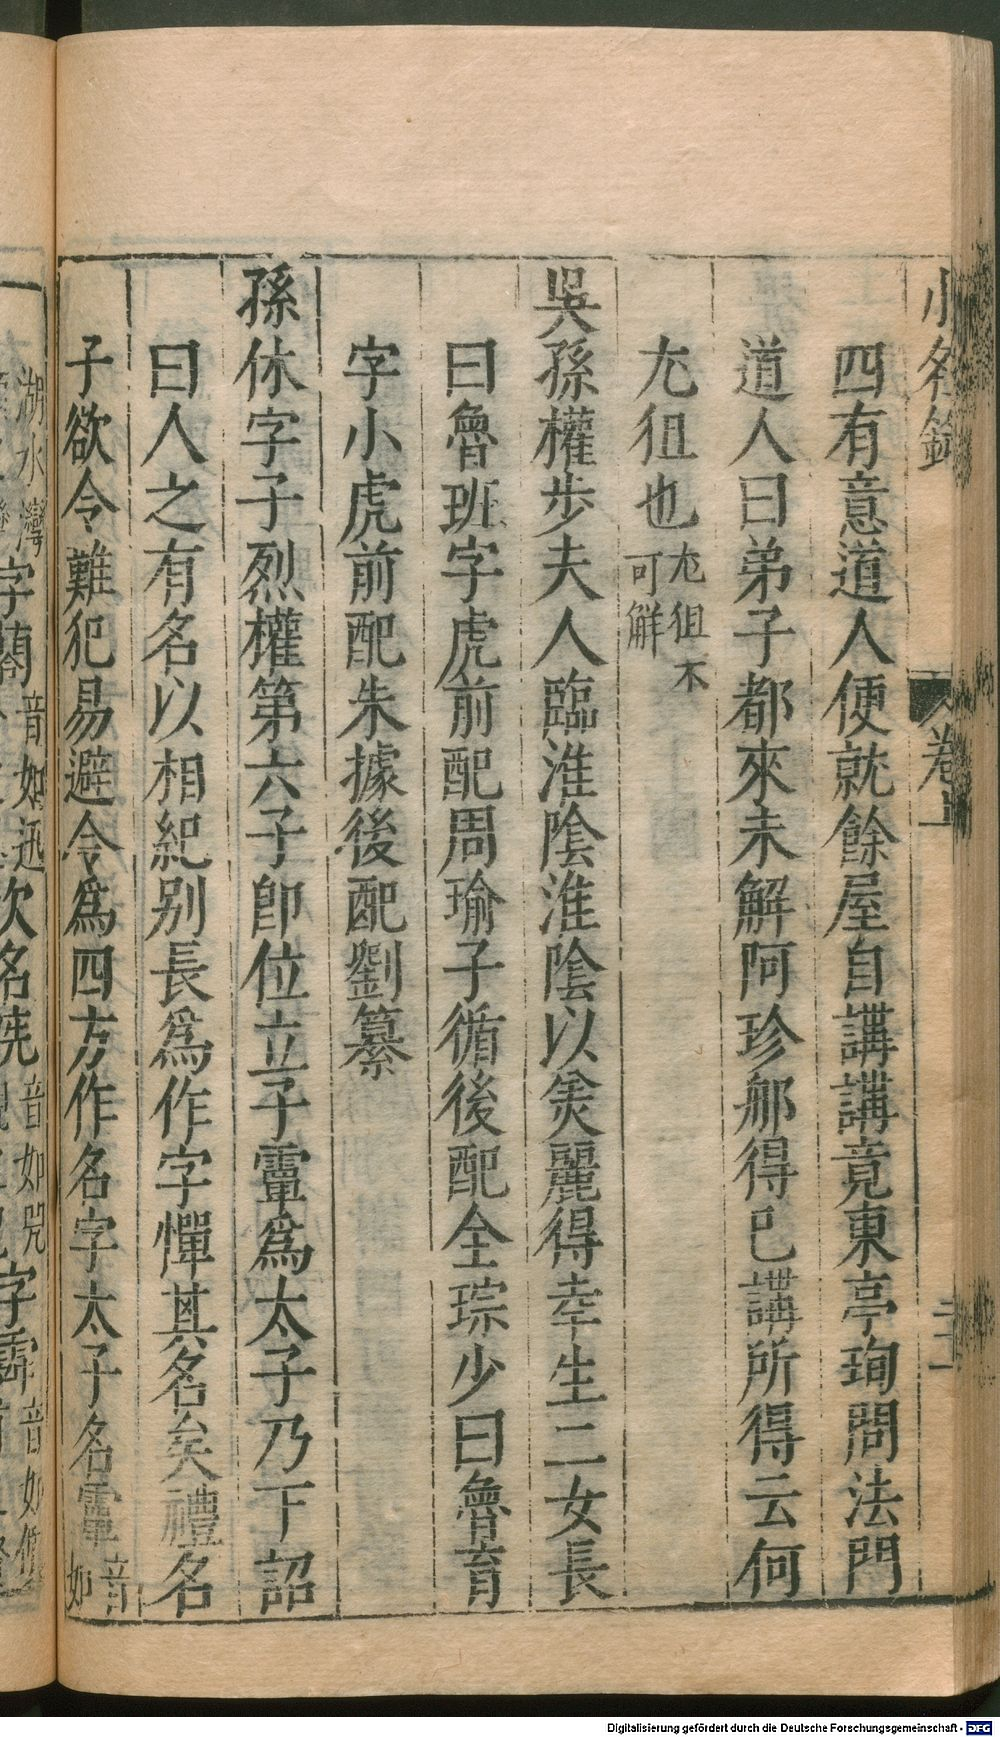 小名錄 卷上 二十一
四有意道人便就餘屋自講講竟東亭珣問法門
道人曰弟子都來未解阿珍郍得已講所得云何
尢狙也尢狙不可解
吳孫權步夫人臨淮陰淮陰以美麗得幸生二女長
曰魯班字虎前配周瑜子循後配全琮少曰魯育
字小虎前配朱據後配劉纂
孫休字子烈權第六子卽位立子𩅦爲太子乃下詔
曰人之有名以相紀别長爲作字憚其名矣禮名
子欲令難犯易避今爲四方作名字太子名𩅦音如
湖水灣字𦭹音如迅次名𩃙音如兕字𩅦音如
Digitalisierung gefördert durch die Deutsche Forschungsgemeinschaft - DFG